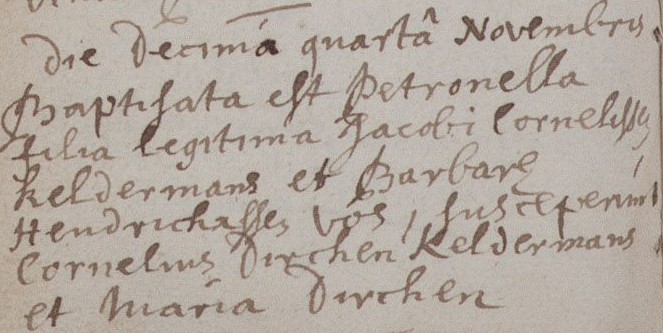 Die Decimâ quartâ Novembris
Baptisata est Petronella
filia legitima Jacobi Cornelissen
Keldermans et Barbarę
Hendrichassen Vos, susceperunt
Cornelius Dirchen Keldermans
et Maria Dirchen